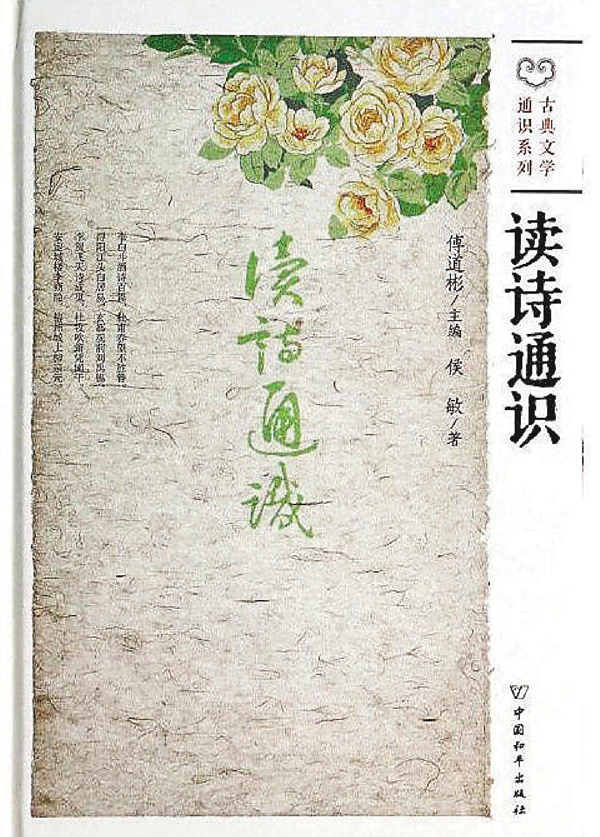 古典文学
通识系列
读诗通识
傅道彬/主编 侯 敏/著
讀詩通識
李白斗酒诗百篇，
浔阳江头白居易，玄都观前刘禹锡。
李贺飞天诗成鬼，杜牧吹箫凭阑干。
安定城楼李商隐，
中国和平出版社